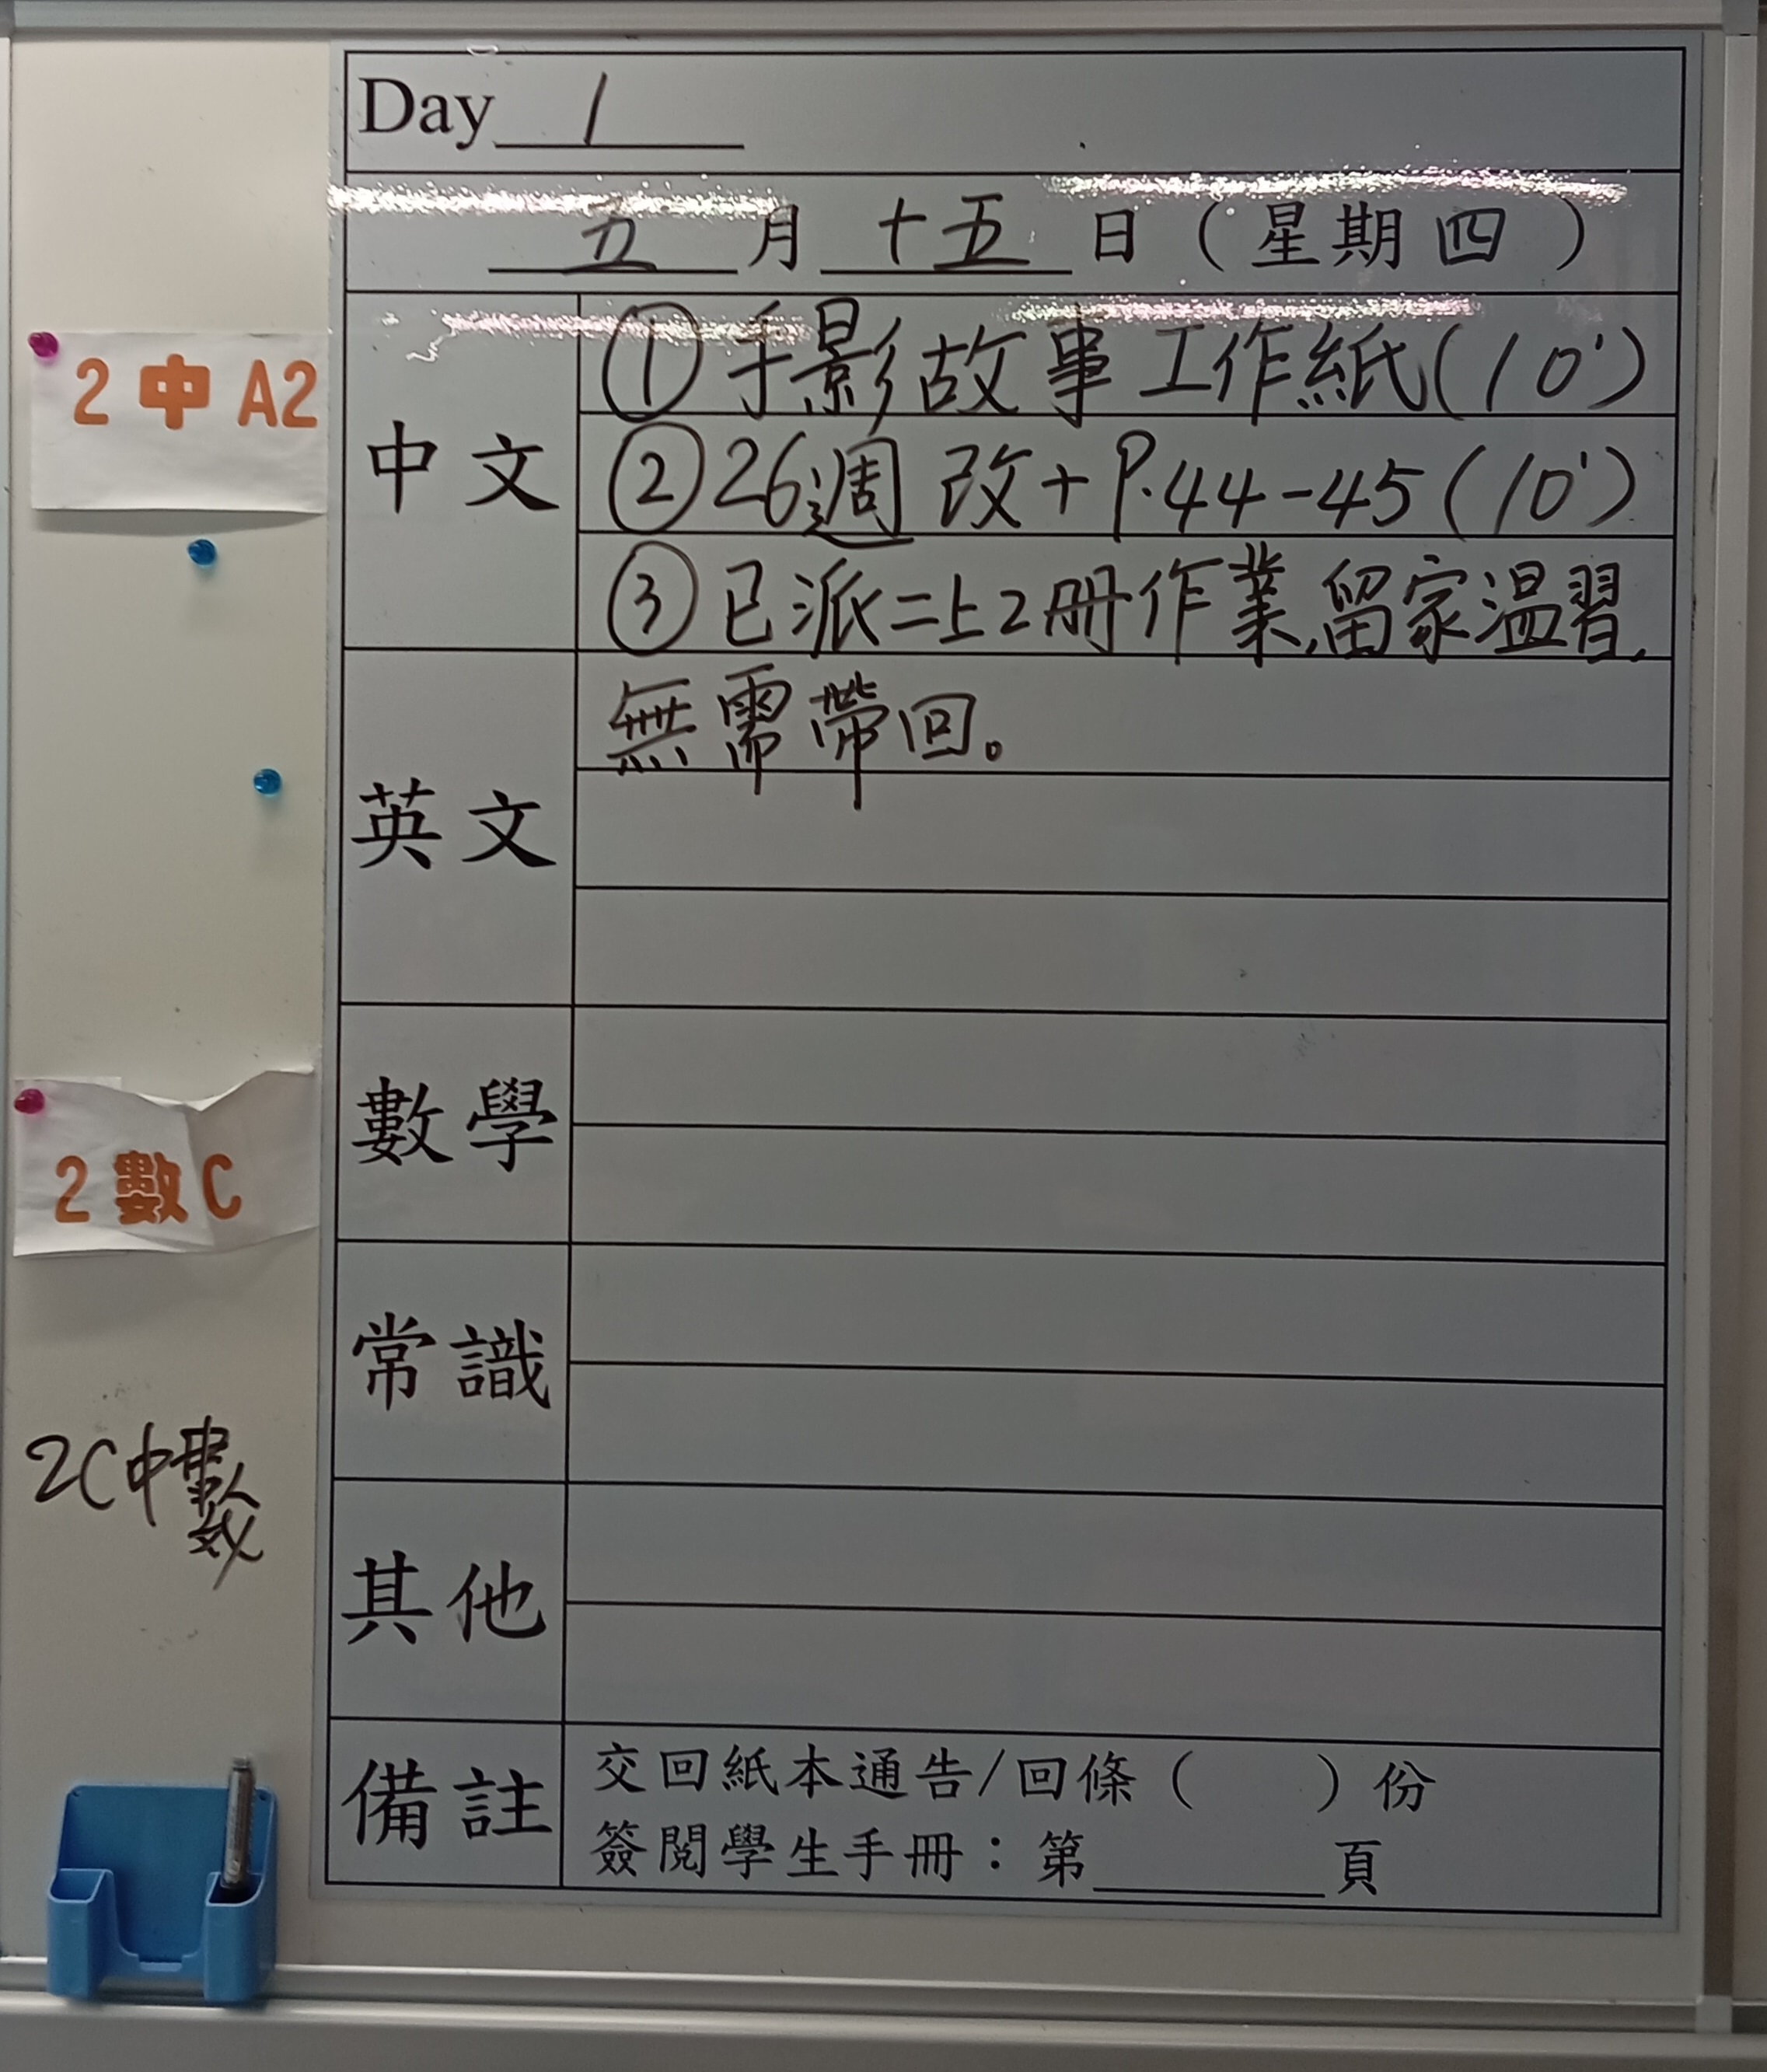 Day 1
五 月 十五 日（星期四）
2 中 A2
中文
① 手影故事工作紙(10')
② 26週 改+P.44-45(10')
③ 已派二上2冊作業,留家溫習,
無需帶回。
英文
2 數 C
數學
常識
2C中數
其他
備註
交回紙本通告/回條（ ）份
簽閱學生手冊：第 頁